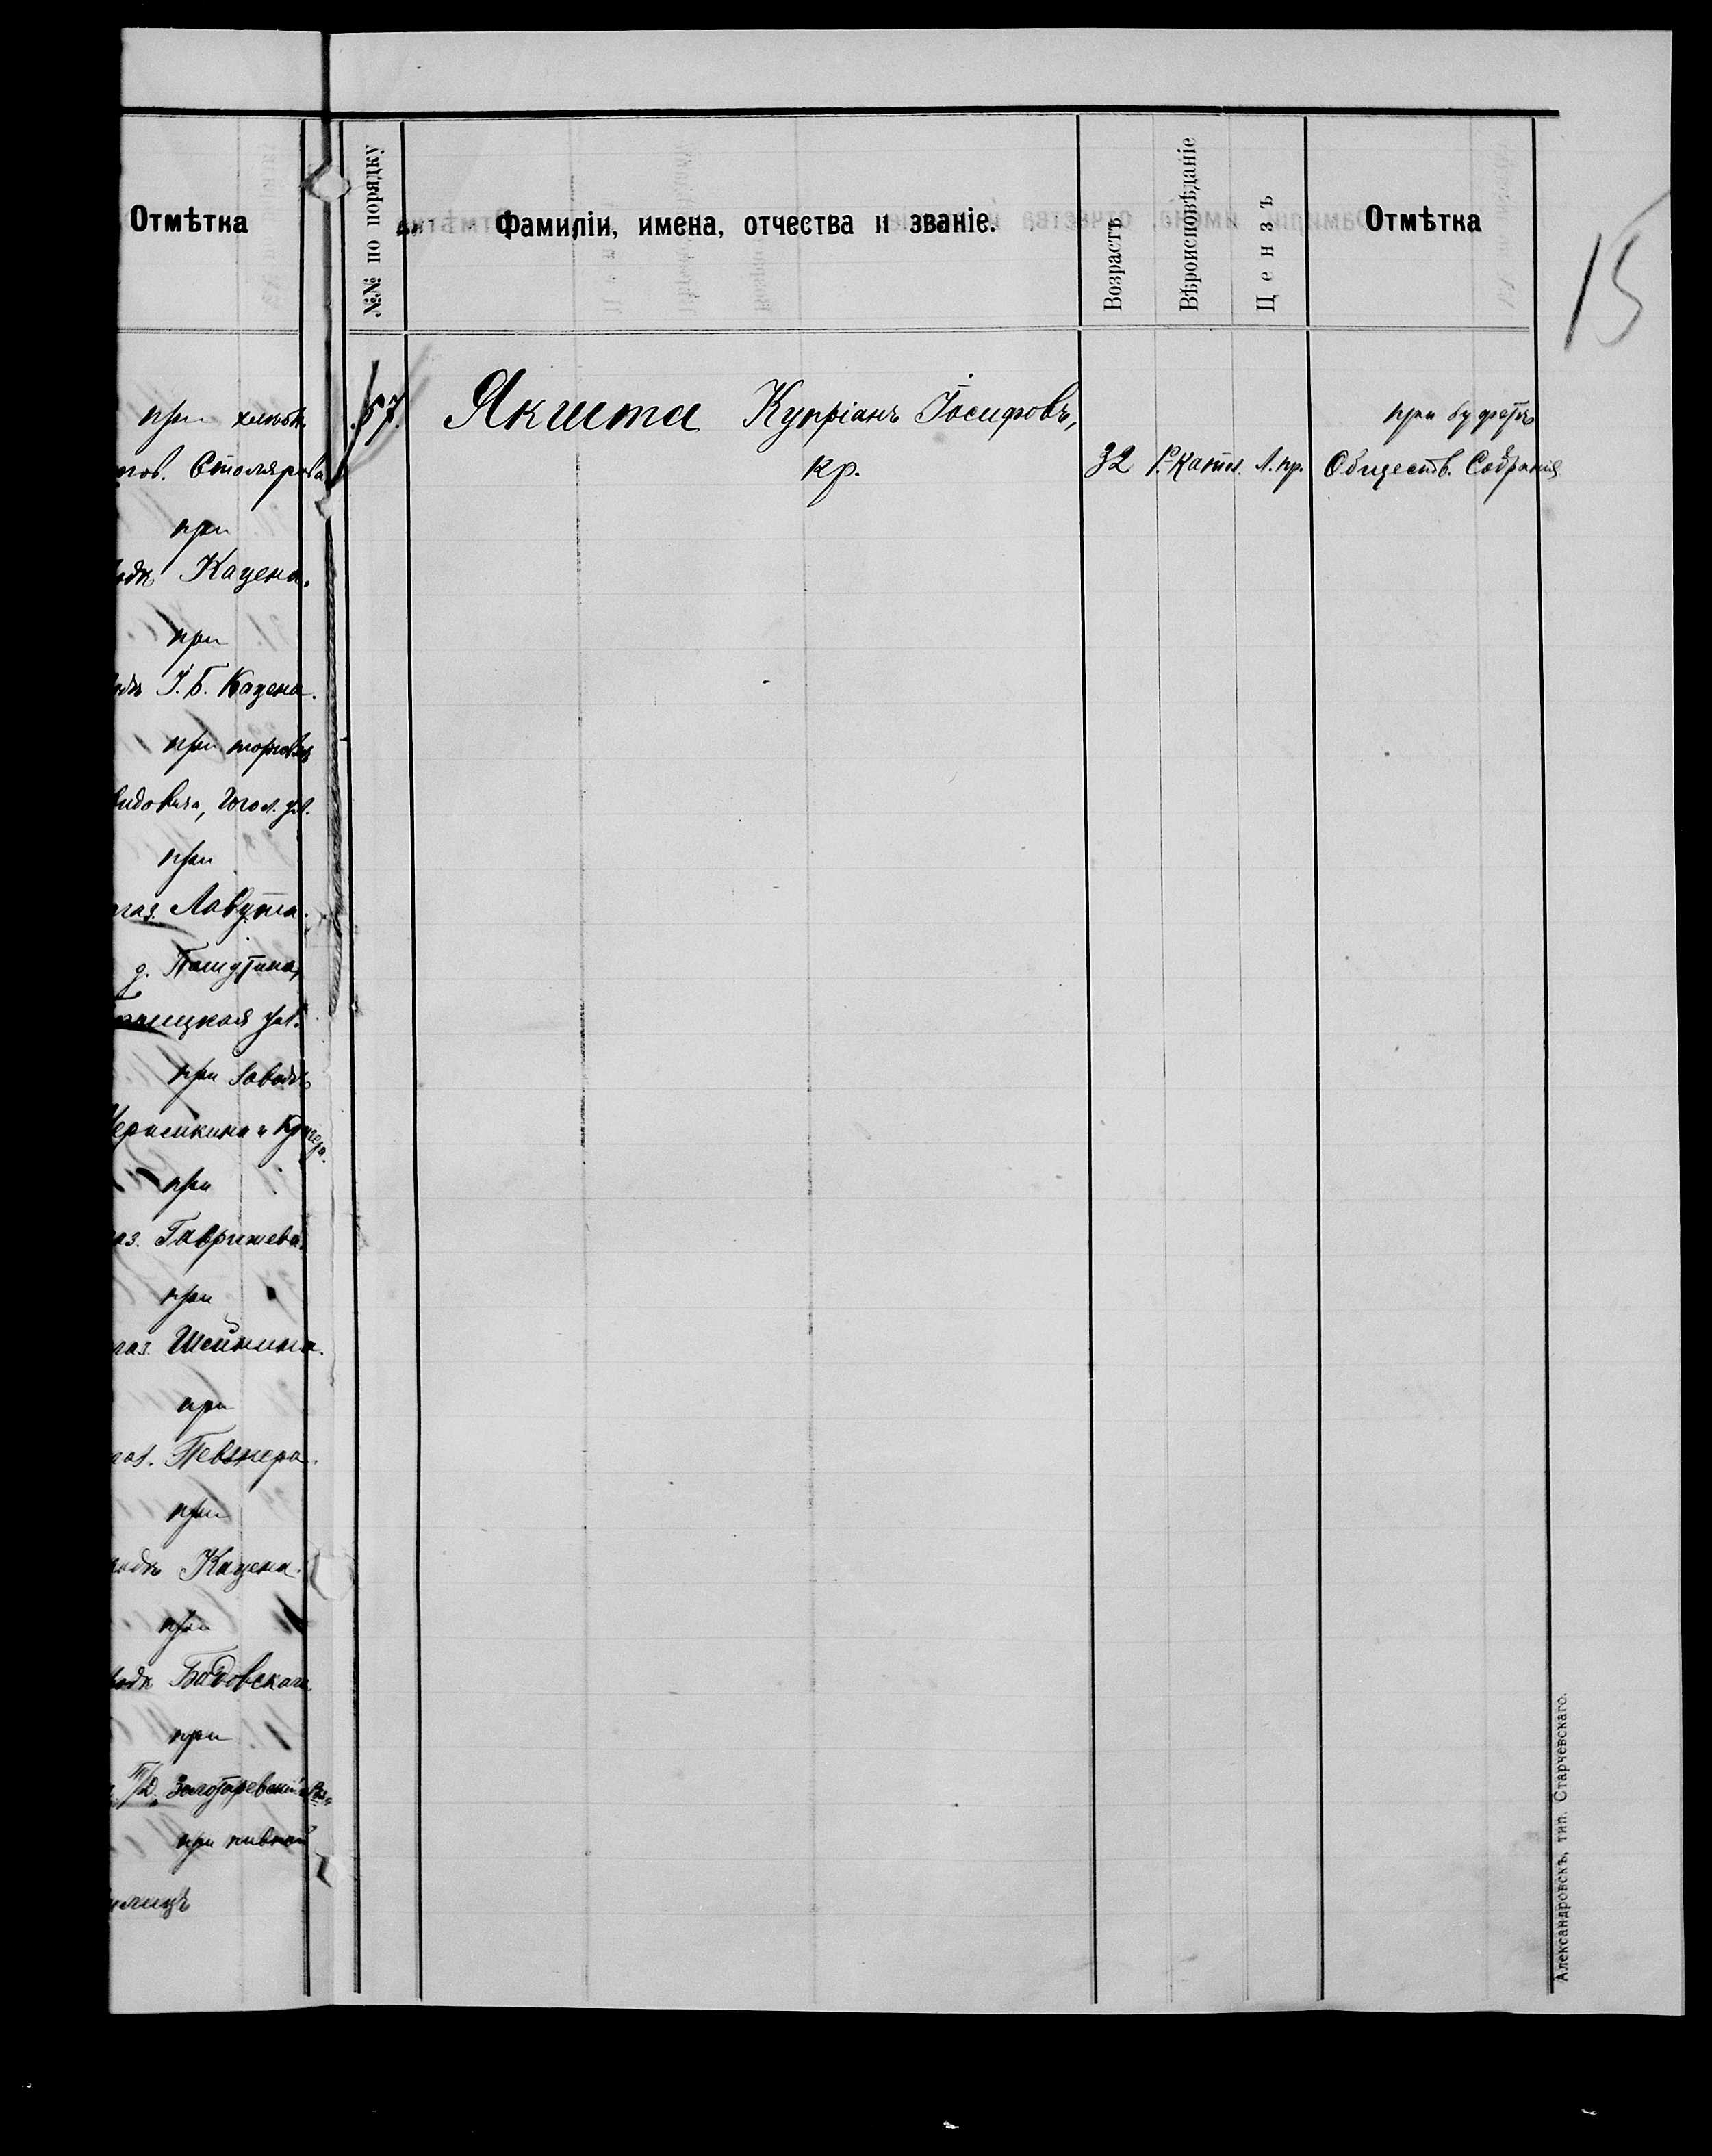 Отмѣтка
при
Столярова
при
Кацена.
при
І. Б. Кацена.
при торговл
видовича, Гогол. ул.
при
маг. Лавута.
д. Пашутина,
Троицкая ул.
при заводѣ
при
Гавришева.
при
маг. Шейнина.
при
Певзнера.
при
Кацена.
при
Бадовскаго
при
Т/Д. Золотаревскій
при пивной
15
№№ по порядку
Фамиліи, имена, отчества и званіе.
Возрастъ
Вѣроисповѣданіе
Цензъ
Отмѣтка
57. Якишта Купріанъ Іосифовъ,
кр.
32 Р.-Катол. Л. пр.
при буфетѣ
Обществ. Собранія
Александровскъ, тип. Старчевскаго.